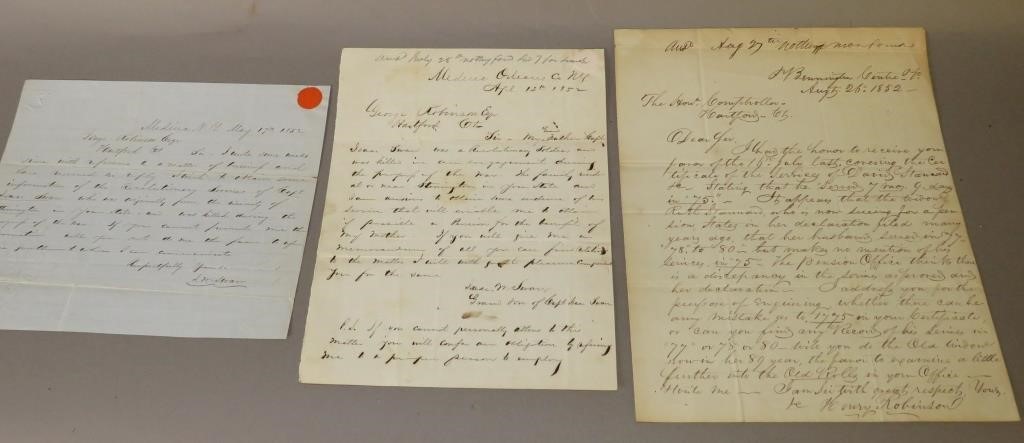 Medina N.Y. May 17th 1852
George Robinson Esq
Hartford Ct Sir I wrote some weeks
since with reference to a matter of
have received no reply I wish to obtain some
information of the Revolutionary Services of Capt
Isaac Swan who was originally from the vicinity of
Stonington in your state and was killed during the
of the War If you cannot furnish me the
will you not do me the favor to
Respectfully Yours
I. W. Swan
Ansd July 28th
Medina Orleans Co NY
Apl 12th 1852
George Robinson Esq
Hartford Ct
Sir - My Father Capt
Isaac Swan was a Revolutionary Soldier and
was killed in an engagement during
the progress of the War. The family resided
at or near Stonington in your State and I
am anxious to obtain some evidence of his
services that will enable me to obtain
if possible a Pension for the benefit of
My Mother If you will give me a
Memorandum of all you can find relating
to the matter I will with great pleasure compensate
You for the same
Isaac W. Swan
Grand Son of Capt Isaac Swan
P.S. If you cannot personally attend to this
matter you will confer an obligation by
me to a proper person to employ
Ansd Aug 27th nothing more found
Bennington Centre Vt
Augt 26. 1852
The Hon. Comptroller
Hartford Ct.
Dear Sir
I had the honor to receive your
favor of the 19th July last, covering the Cer
tificate of the Services of David Stannard
&c Stating that he Served 7 mos 9 days
in '75. It appears that the widow
Ruth Stannard, who is now suing for a pen
sion States in her declaration filed many
years ago, that her husband, Served in '77
'78. to '80 - but makes no mention of his
services in '75 The Pension Office thinks there
is a discrepancy in the service as proved and
her declaration - I address you for the
purpose of enquiring, whether there can be
any mistake as to 1775 on your Certificate
or can you find any Record of his Services in
'77 or '78 or '80 - Will you do the Old Widow
now in her 89 year, the favor to examine a little
further into the Old Rolls in your Office -
& write me - I am Sir with great respect, Yours
&c Henry Robinson